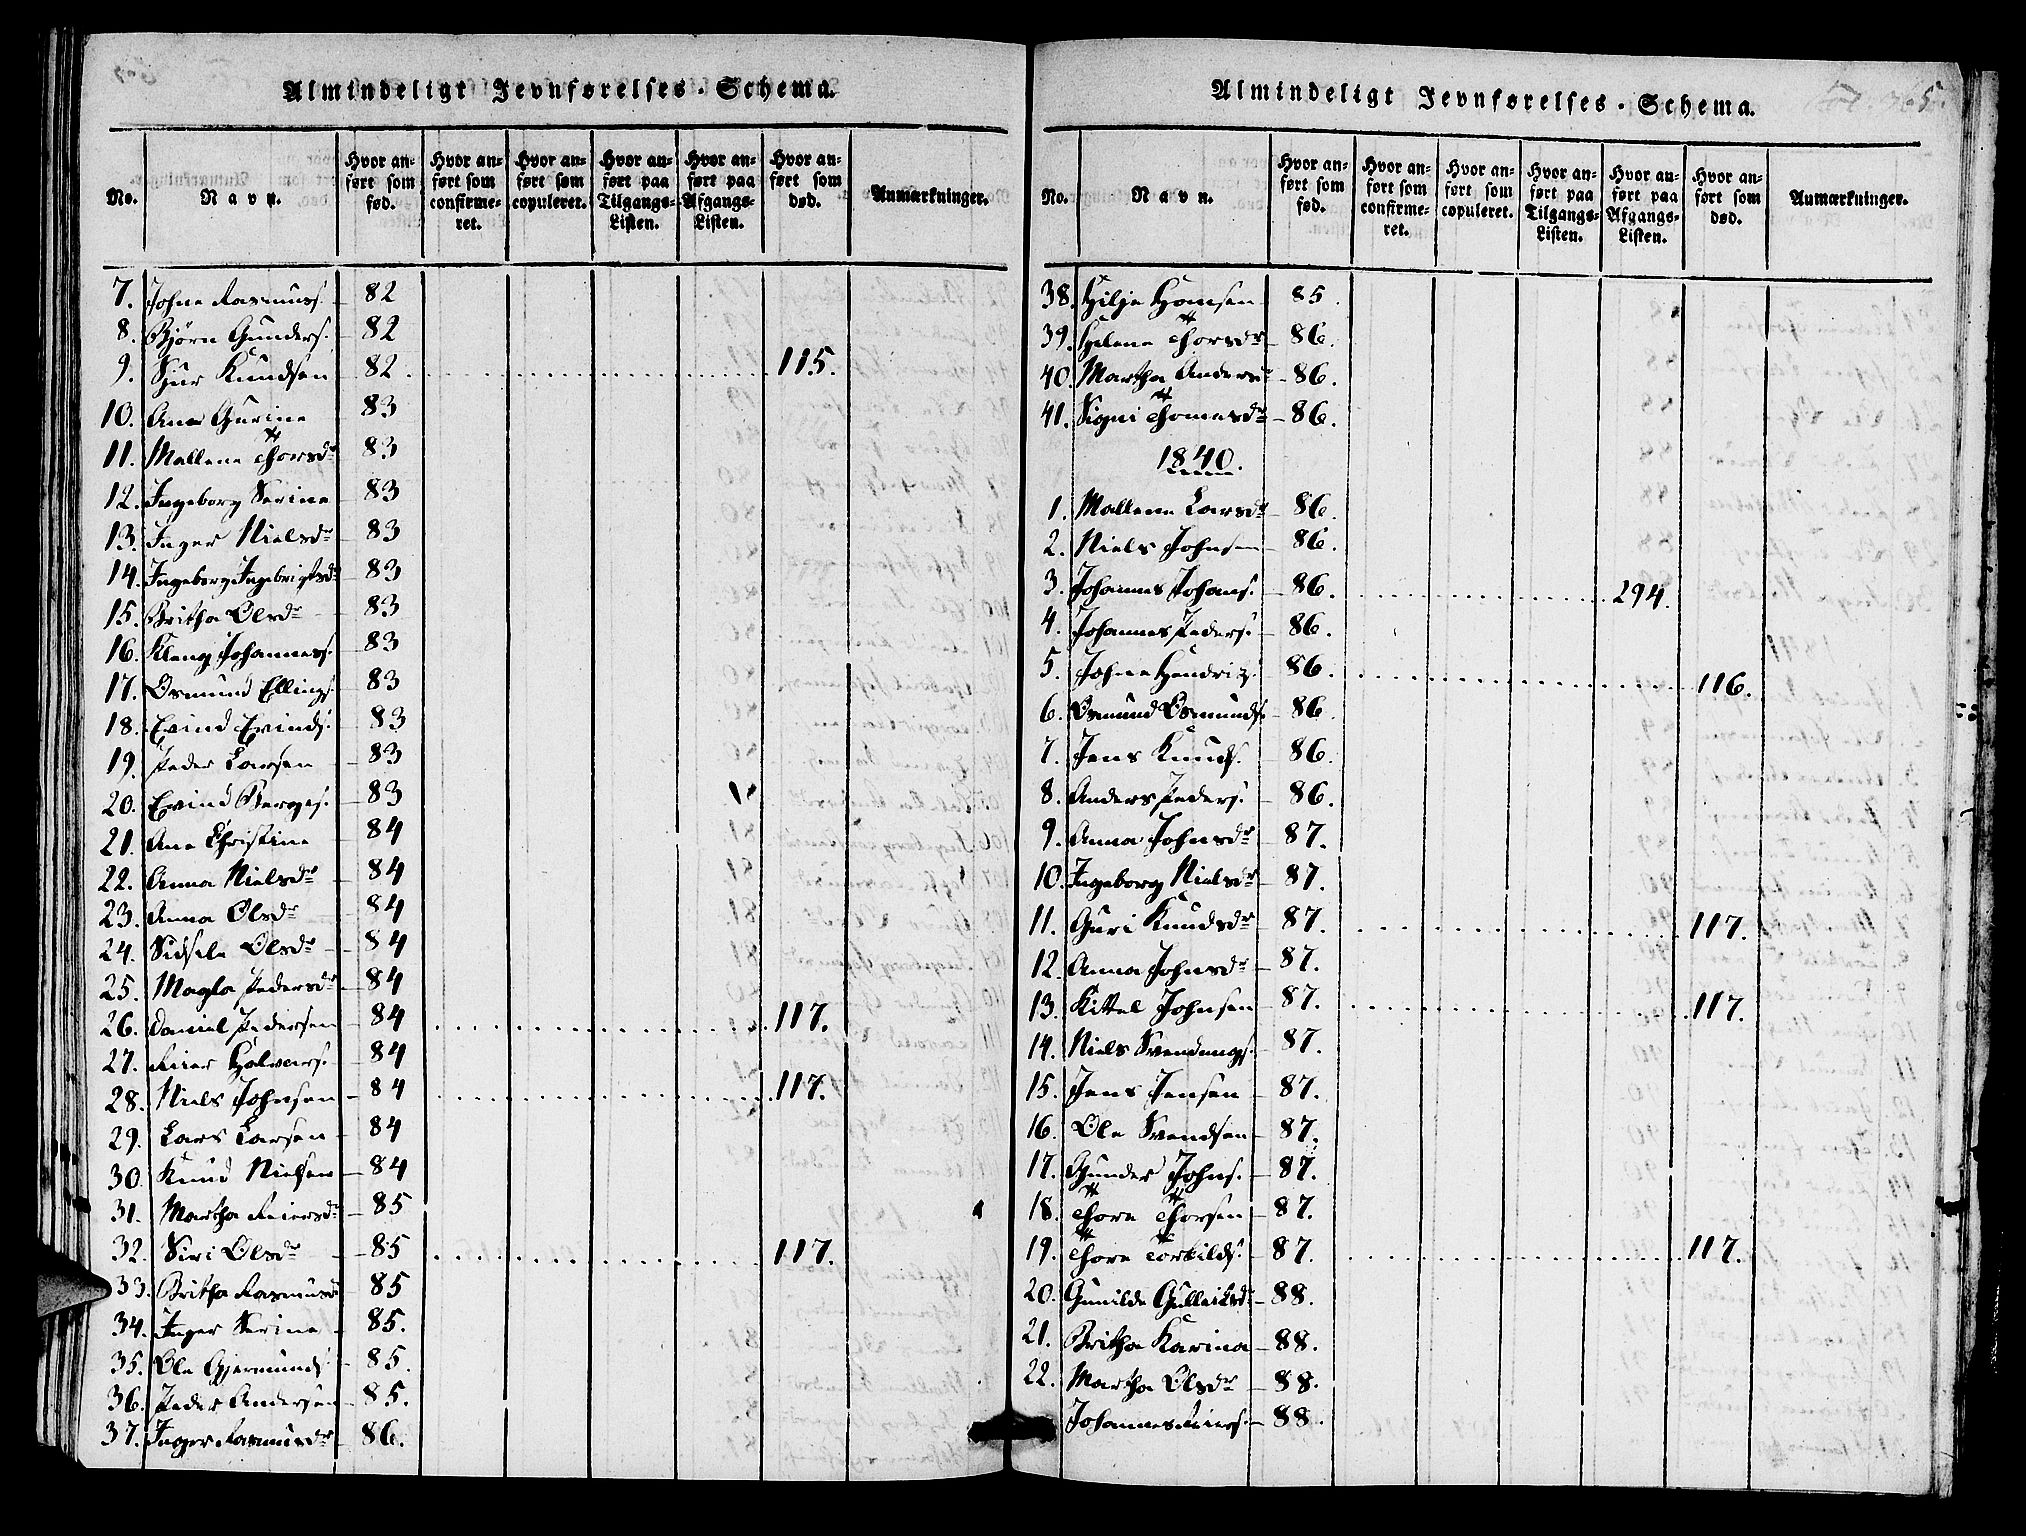 Almindeligt Jevnførelses-Schema.
No. Navn. Hvor anført som fød. Hvor anført som confirmeret. Hvor anført som copuleret. Hvor anført paa Tilgangs-Listen. Hvor anført paa Afgangs-Listen. Hvor anført som død. Anmærkninger.
7. Johne Rasmuss. 82
8. Bjørn Gunders. 82
9. Sjur Knudsen 82 115.
10. Ane Gurine 83
11. Mallene Thorsdr 83
12. Ingeborg Serine 83
13. Inger Nielsdr 83
14. Ingeborg Ingebrigtsdr 83
15. Britha Olsdr 83
16. Kleng Johannes. 83
17. Osmund Ellings. 83
18. Evind Evinds. 83
19. Peder Larsen 83
20. Evind Børges. 83
21. Ane Christine 84
22. Anna Nielsdr 84
23. Anna Olsdr 84
24. Sidsele Olsdr 84
25. Magla Pedersdr 84
26. Daniel Pedersen 84 117.
27. Reier Halvors. 84
28. Niels Johnsen 84 117.
29. Lars Larsen 84
30. Knud Nielsen 84
31. Martha Reiersdr 85
32. Siri Olsdr 85 117.
33. Britha Rasmusdr 85
34. Inger Serine 85.
35. Ole Gjermunds. 85.
36. Peder Andersen 85.
37. Inger Rasmusdr 86.
Almindeligt Jevnførelses-Schema.
365.
No. Navn. Hvor anført som fød. Hvor anført som confirmeret. Hvor anført som copuleret. Hvor anført paa Tilgangs-Listen. Hvor anført paa Afgangs-Listen. Hvor anført som død. Anmærkninger.
38. Hilje Homsen 85.
39. Helene Thorsdr 86.
40. Martha Andersdr 86.
41. Signi Thomasdr 86.
1840.
1. Mallene Larsdr 86.
2. Niels Johnsen 86.
3. Johannes Johans. 86. 294.
4. Johannes Peders. 86.
5. Johne Hendriks. 86. 116.
6. Osmund Osmunds. 86.
7. Jens Knuds. 86.
8. Anders Peders. 86.
9. Anna Johnsdr 87.
10. Ingeborg Nielsdr 87.
11. Guri Knudsdr 87. 117.
12. Anna Johnsdr 87.
13. Kittel Johnsen 87. 117.
14. Niels Svendungs. 87.
15. Jens Jensen 87.
16. Ole Svendsen 87.
17. Gunder Johns. 87.
18. Thore Thorsen 87.
19. Thore Torkilds. 87. 117.
20. Gunilde Gulleiksdr 88.
21. Britha Karina 88.
22. Martha Olsdr 88.
Johannes Reiers. 88.